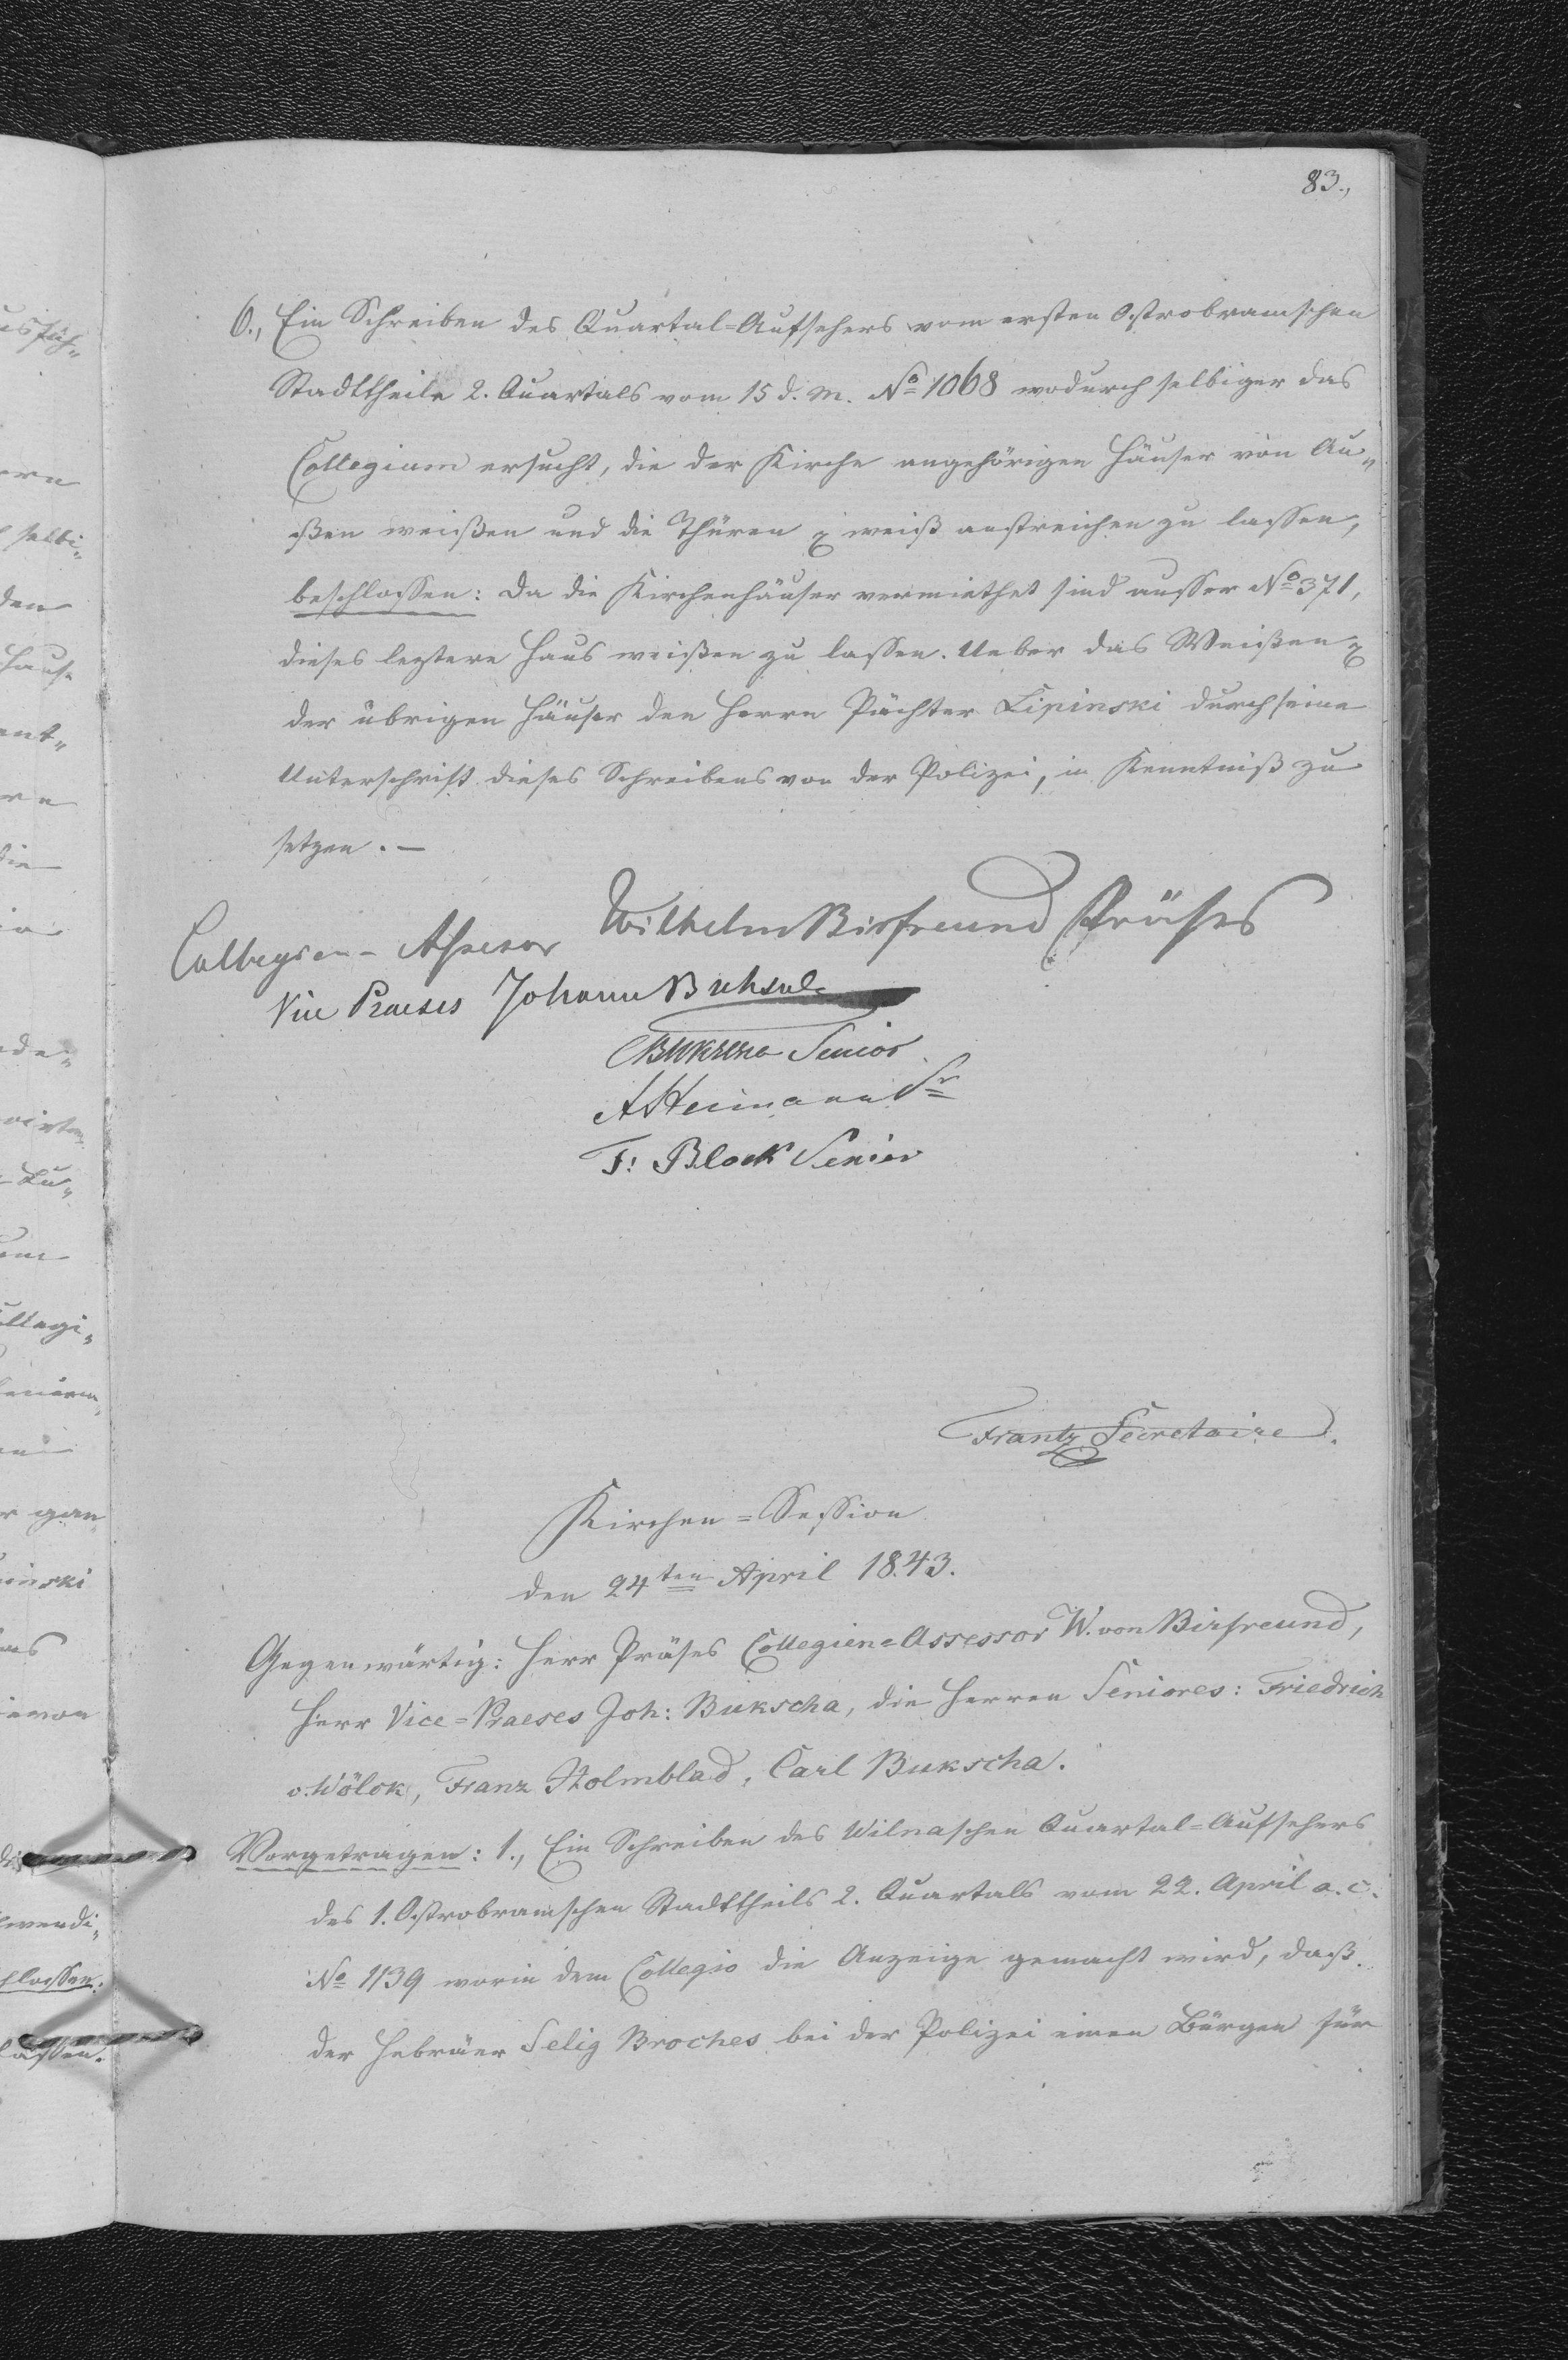 83.,
6., Ein Schreiben des Quartal=Aufsehers vom ersten Ostrobramschen
Stadttheile 2. Quartals vom 15 d. M. No 1068 wodurch selbiger das
Collegium ersucht, die der Kirche angehörigen Häuser von Au„
ßen weißen und die Thüren weiß anstreichen zu lassen,
beschlossen: Da die Kirchenhäuser vermiethet sind ausser No 371,
dieses leztere Haus weißen zu lassen. Ueber das Weißen
der übrigen Häuser den Herrn Pächter Lipinski durch seine
Unterschrift dieses Schreibens von der Polizei, in Kenntniß zu
setzen. —
Collegien-Assessor Wilhelm Birfreund Präses
Vice Praeses Johann
Senior
A Heimann Sr
F: Block Senior
Frantz Secretaire.
Kirchen=Session
den 24ten April 1843.
Gegenwärtig: Herr Präses Collegien=Assessor W. von Birfreund,
Herr Vice=Praeses Joh: Bukscha, die Herren Seniores: Friedrich
v. Wölck, Franz Holmblad, Carl Bukscha.
Vorgetragen: 1., Ein Schreiben des Wilnaschen Quartal=Aufsehers
des 1. Ostrobramschen Stadttheils 2. Quartals vom 22. April a. c.
No 1139 worin dem Collegio die Anzeige gemacht wird, daß
der Hebräer Selig Broches bei der Polizei einen Bürgen für